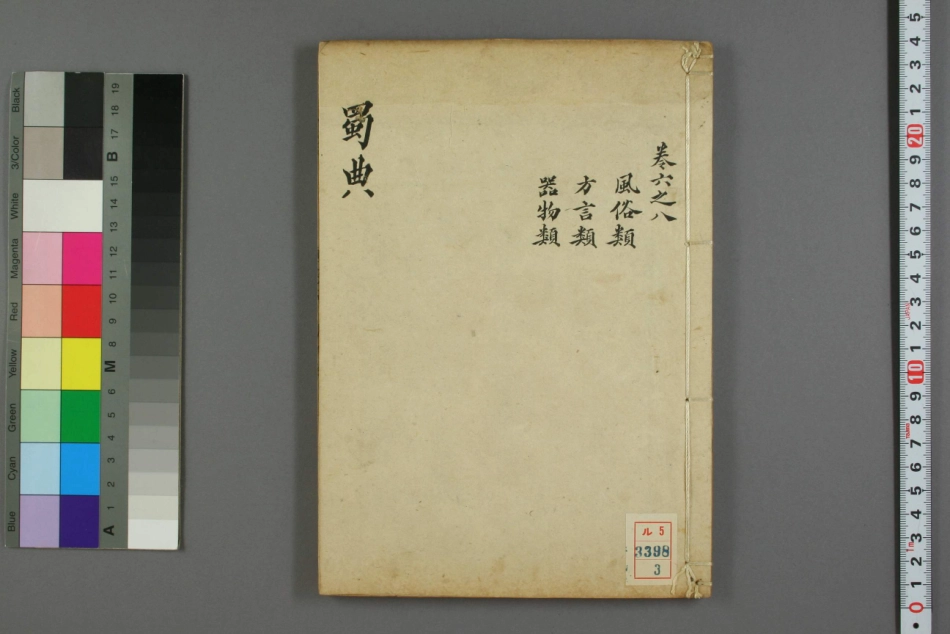 蜀典
卷六之八
風俗類
方言類
器物類
ル 5
3398
3
Black
3/Color
White
Magenta
Red
Yellow
Green
Cyan
Blue
19
18
17
B
15
14
13
12
11
10
9
8
M
6
5
4
3
2
1
A
5
4
3
2
1
20
9
8
7
6
5
4
3
2
1
10
9
8
7
6
5
4
3
2
1
0